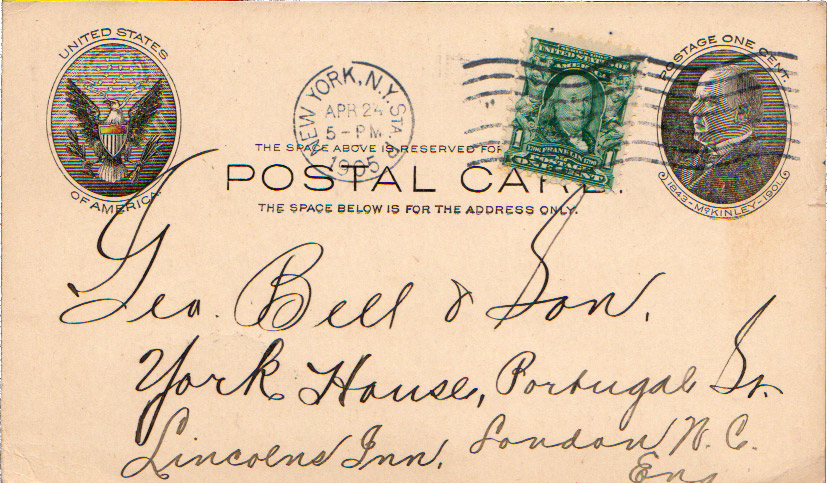 UNITED STATES
OF AMERICA
NEW YORK, N.Y. STA.
APR 24
5-PM
1905
UNITED STATES OF AMERICA
1706 FRANKLIN 1790
1 1
ONE CENT
POSTAGE ONE CENT.
1843-McKINLEY-1901
THE SPACE ABOVE IS RESERVED FOR
POSTAL CARD.
THE SPACE BELOW IS FOR THE ADDRESS ONLY.
Geo. Bell & Son.
York House, Portugal St.
Lincolns Inn, London W. C.
Eng